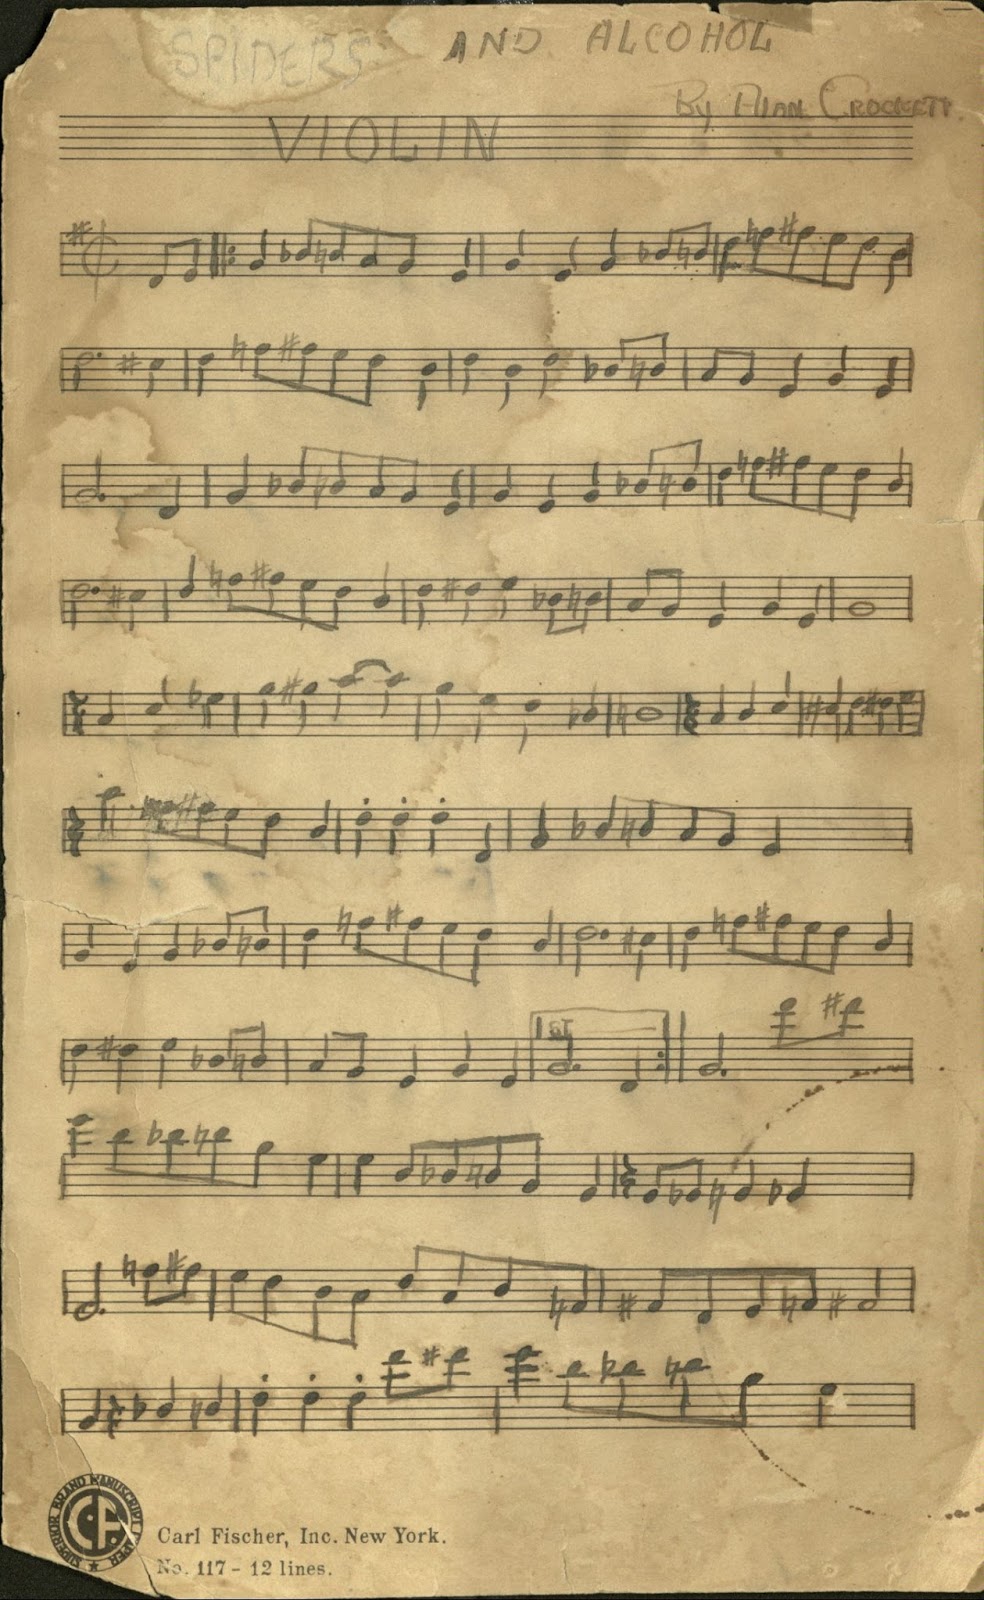 SPIDERS AND ALCOHOL
By Alan Crockett.
VIOLIN
1st
SUPERIOR BRAND MANUSCRIPT PAPER
CF
Carl Fischer, Inc. New York.
No. 117 - 12 lines.